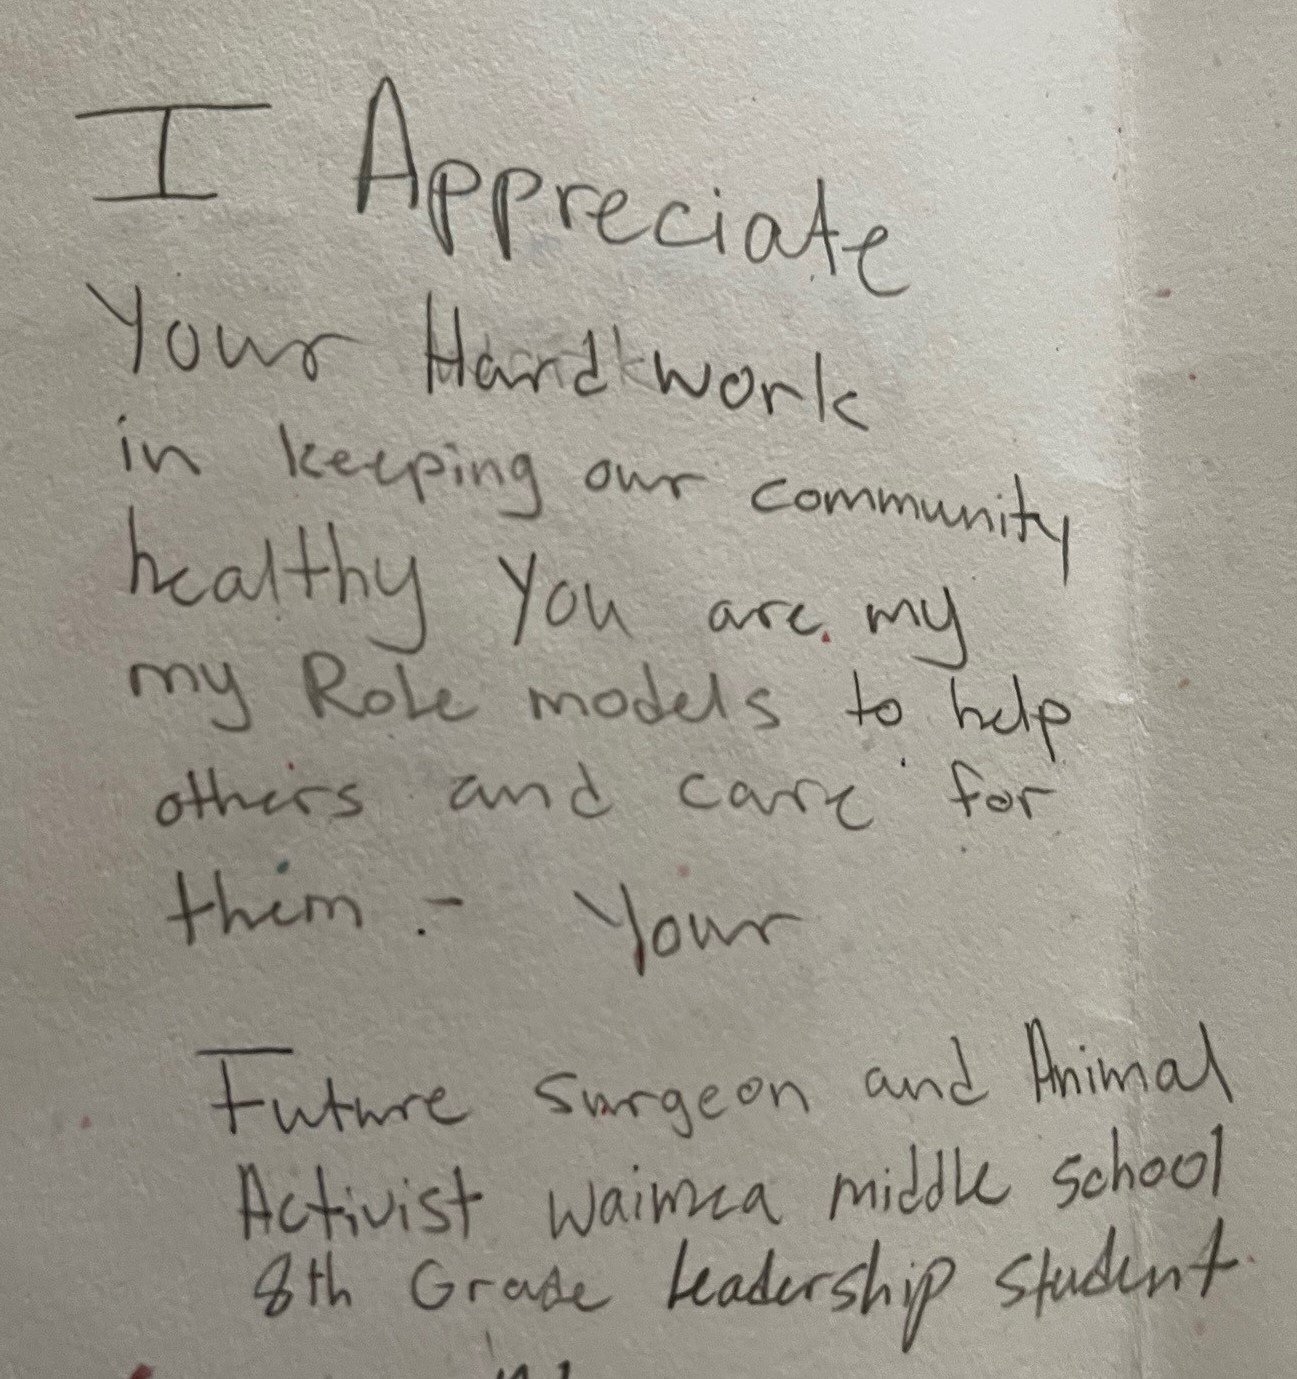 I Appreciate
Your Hardwork
in keeping our community
healthy You are my
my Role models to help
others and care for
them. - Your
Future surgeon and Animal
Activist Waimea middle school
8th Grade Leadership student